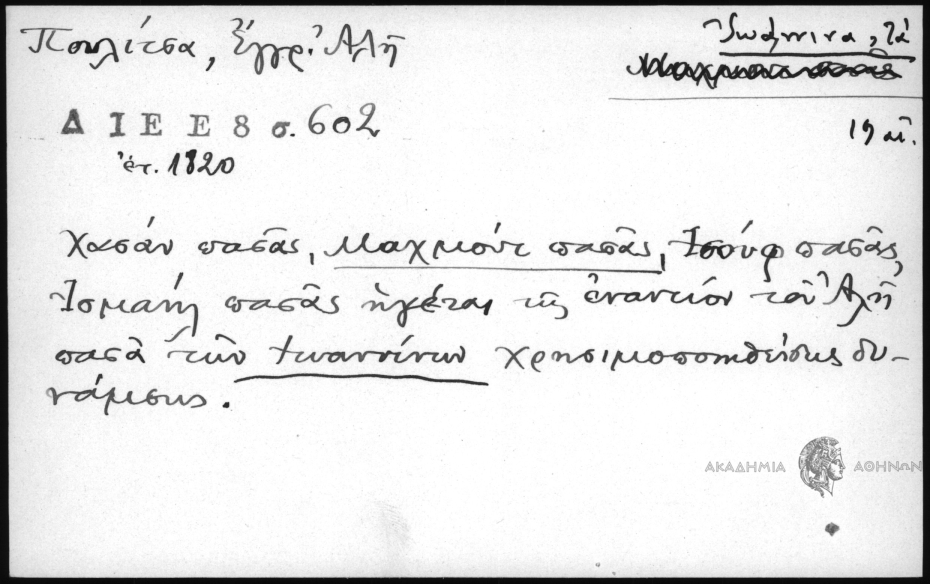 Πουλίτσα, Ἔγγρ. Ἀλῆ
Ἰωάννινα, τὰ
Δ Ι Ε Ε 8 σ. 602
19 αἰ.
ἐτ. 1820
Χασάν πασᾶς, Μαχμούτ πασᾶς, Ἰσούφ πασᾶς,
Ἰσμαήλ πασᾶς ἡγέται τῆς ἐναντίον τοῦ Ἀλῆ
πασᾶ τῶν Ἰωαννίνων χρησιμοποιηθείσης δυ-
νάμεως.
ΑΚΑΔΗΜΙΑ ΑΘΗΝΩΝ